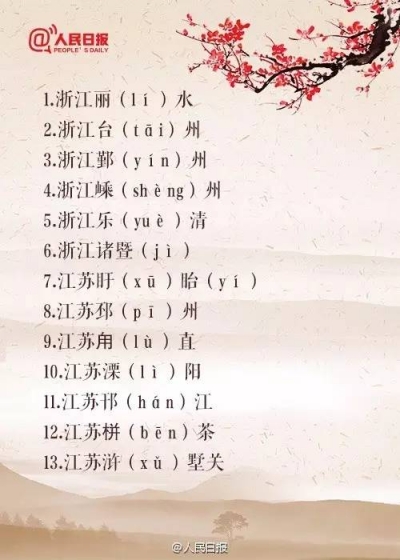 @人民日报
PEOPLE'S DAILY
1.浙江丽（lí）水
2.浙江台（tāi）州
3.浙江鄞（yín）州
4.浙江嵊（shèng）州
5.浙江乐（yuè）清
6.浙江诸暨（jì）
7.江苏盱（xū）眙（yí）
8.江苏邳（pī）州
9.江苏甪（lù）直
10.江苏溧（lì）阳
11.江苏邗（hán）江
12.江苏栟（bēn）茶
13.江苏浒（xǔ）墅关
@人民日报